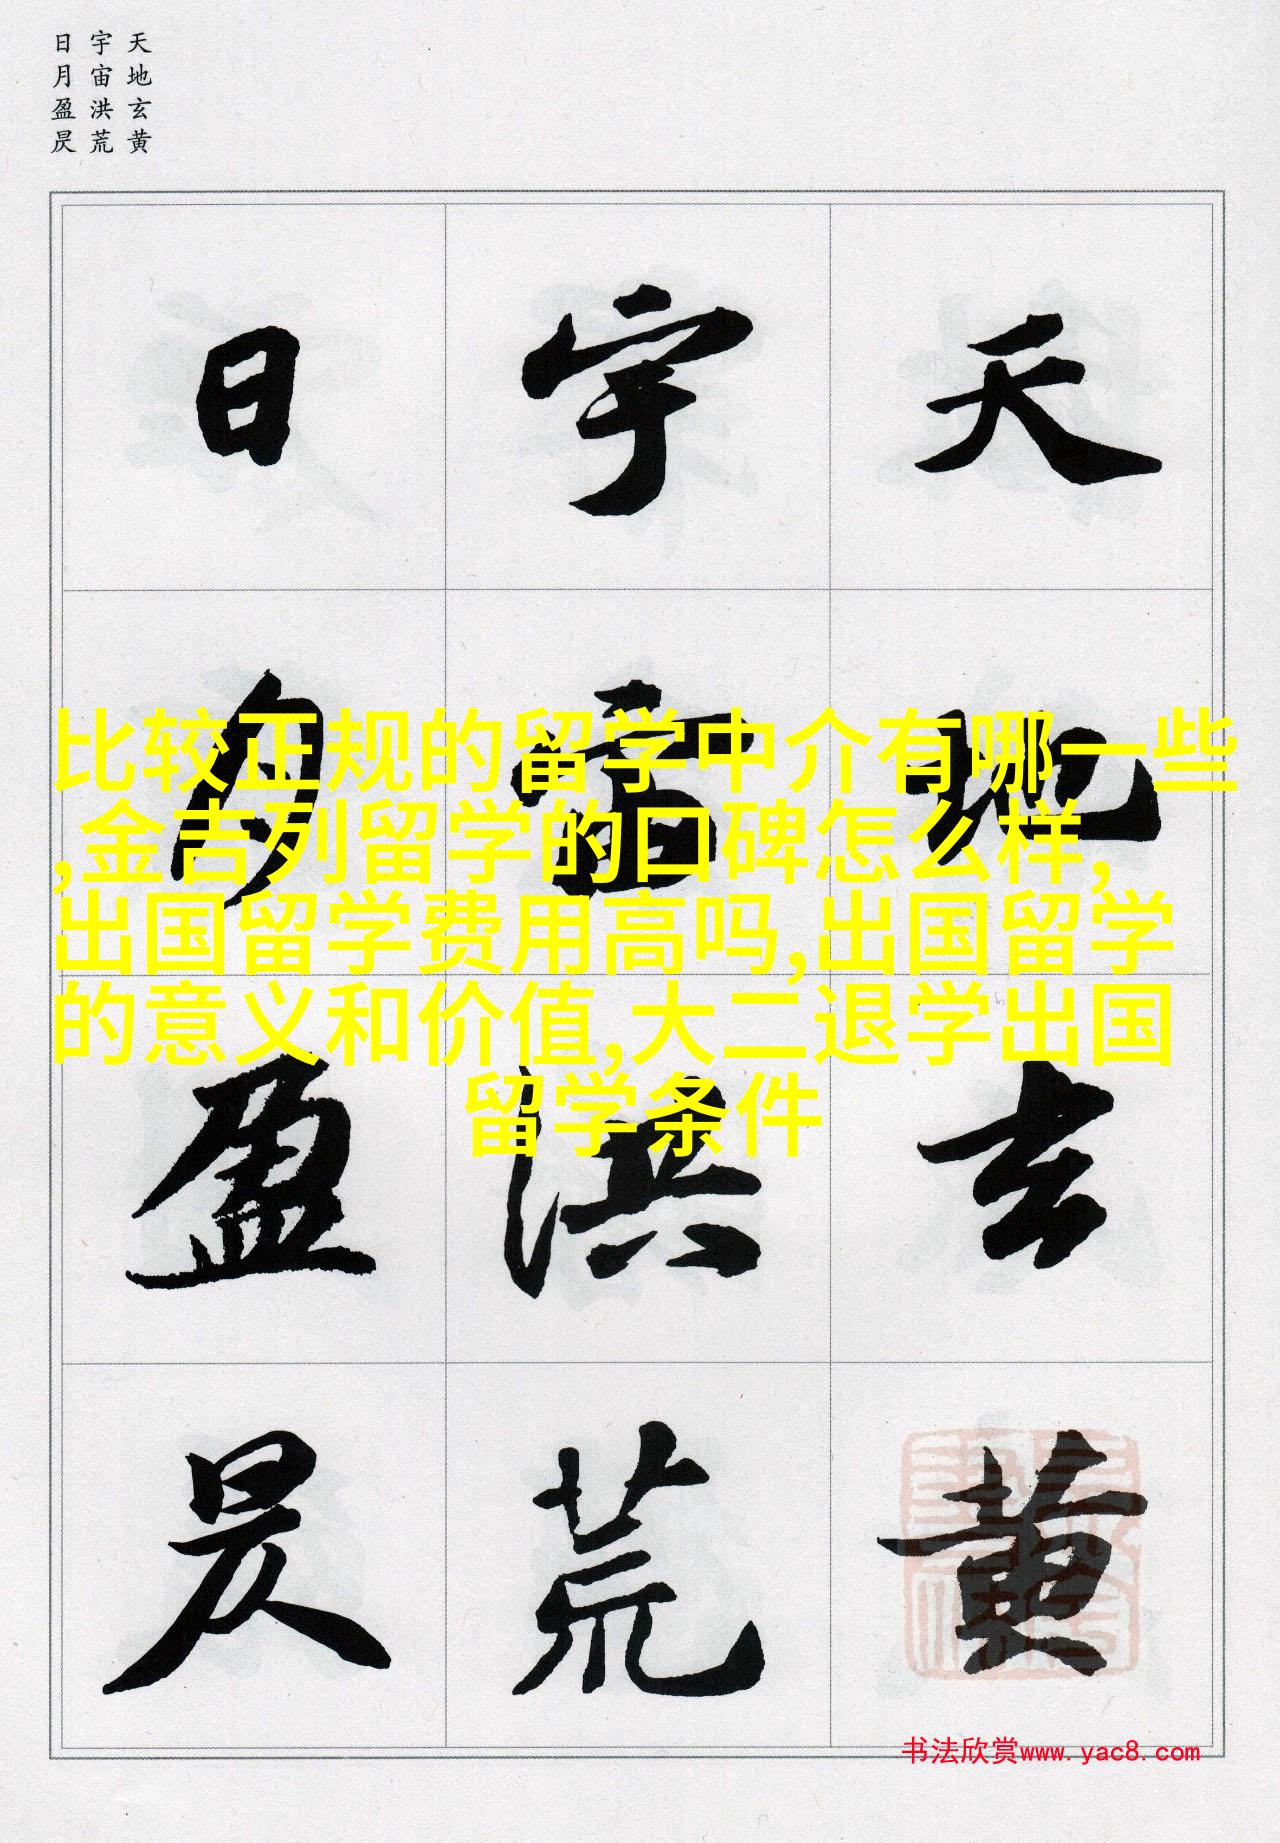 天地玄黄
宇宙洪荒
日月盈昃
天地玄黄
宇宙洪荒
日月盈昃
比较正规的留学中介有哪一些
,金吉列留学的口碑怎么样,
出国留学费用高吗,出国留学
的意义和价值,大二退学出国
留学条件
书法欣赏www.yac8.com